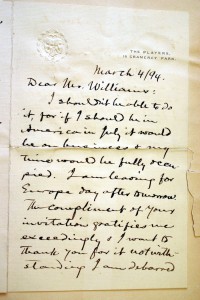 THE PLAYERS,
16 GRAMERCY PARK.
March 4/94.
Dear Mr. Williams:
I should n't be able to do
it, for if I should be in
America in July it would
be on business & my
time would be fully occu-
pied. I am leaving for
Europe day after to-morrow.
The compliment of your
invitation gratifies me
exceedingly, & I want to
thank you for it notwith-
standing I am debarred